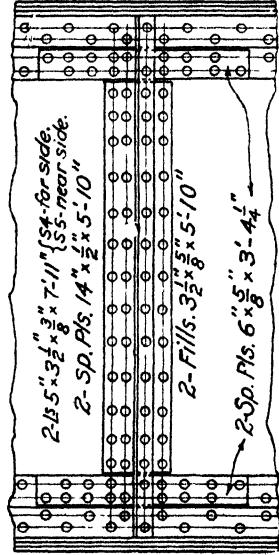 2-Ls 5"×3 1/2"×3/8"×7'-11" {S4-far side.
S5-near side.
2-Sp. Pls. 14"×1/2"×5'-10"
2-Fills. 3 1/2"×5/8"×5'-10"
2-Sp. Pls. 6"×5/8"×3'-4 1/4"